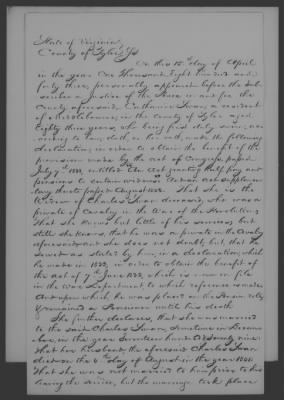 State of Virginia
County of Tyler Ss
On this 10th day of April
in the year One Thousand Eight hundred and
forty three, personally appeared before the Sub-
scriber a Justice of the Peace in and for the
County aforesaid, Catharine Swan, a resident
of in the County of Tyler aged
Eighty three years, who being first duly sworn, ac-
cording to law, doth on her oath, make the following
declaration, in order to obtain the benefit of the
provision made by the act of Congress, passed
July 7th 1838, entitled An act granting half pay and
pensions to certain widows
passed August 1842. That she is the
Widow of Charles Swan deceased, who was a
private of Cavalry in the War of the Revolution
That she knows but little of his services, but
still she knows, that he was a private in the Cavalry
aforesaid and she does not doubt, but that he
served as stated by him, in a declaration, which
he made in 1832, in order to obtain the benefit of
the act of 7th June 1832, which is now on file
in the War Department to which reference is made
And upon which he was placed on the Pension roll,
& remained a Pensioner until his death
She further declares, that she was married
to the said Charles Swan, sometime in Decem-
ber, in the year Seventeen hundred & seventy nine.
That her husband the aforesaid Charles Swan,
died on the 6th day of August in the year 1840
That she was not married to him prior to his
leaving the service, but the marriage took place